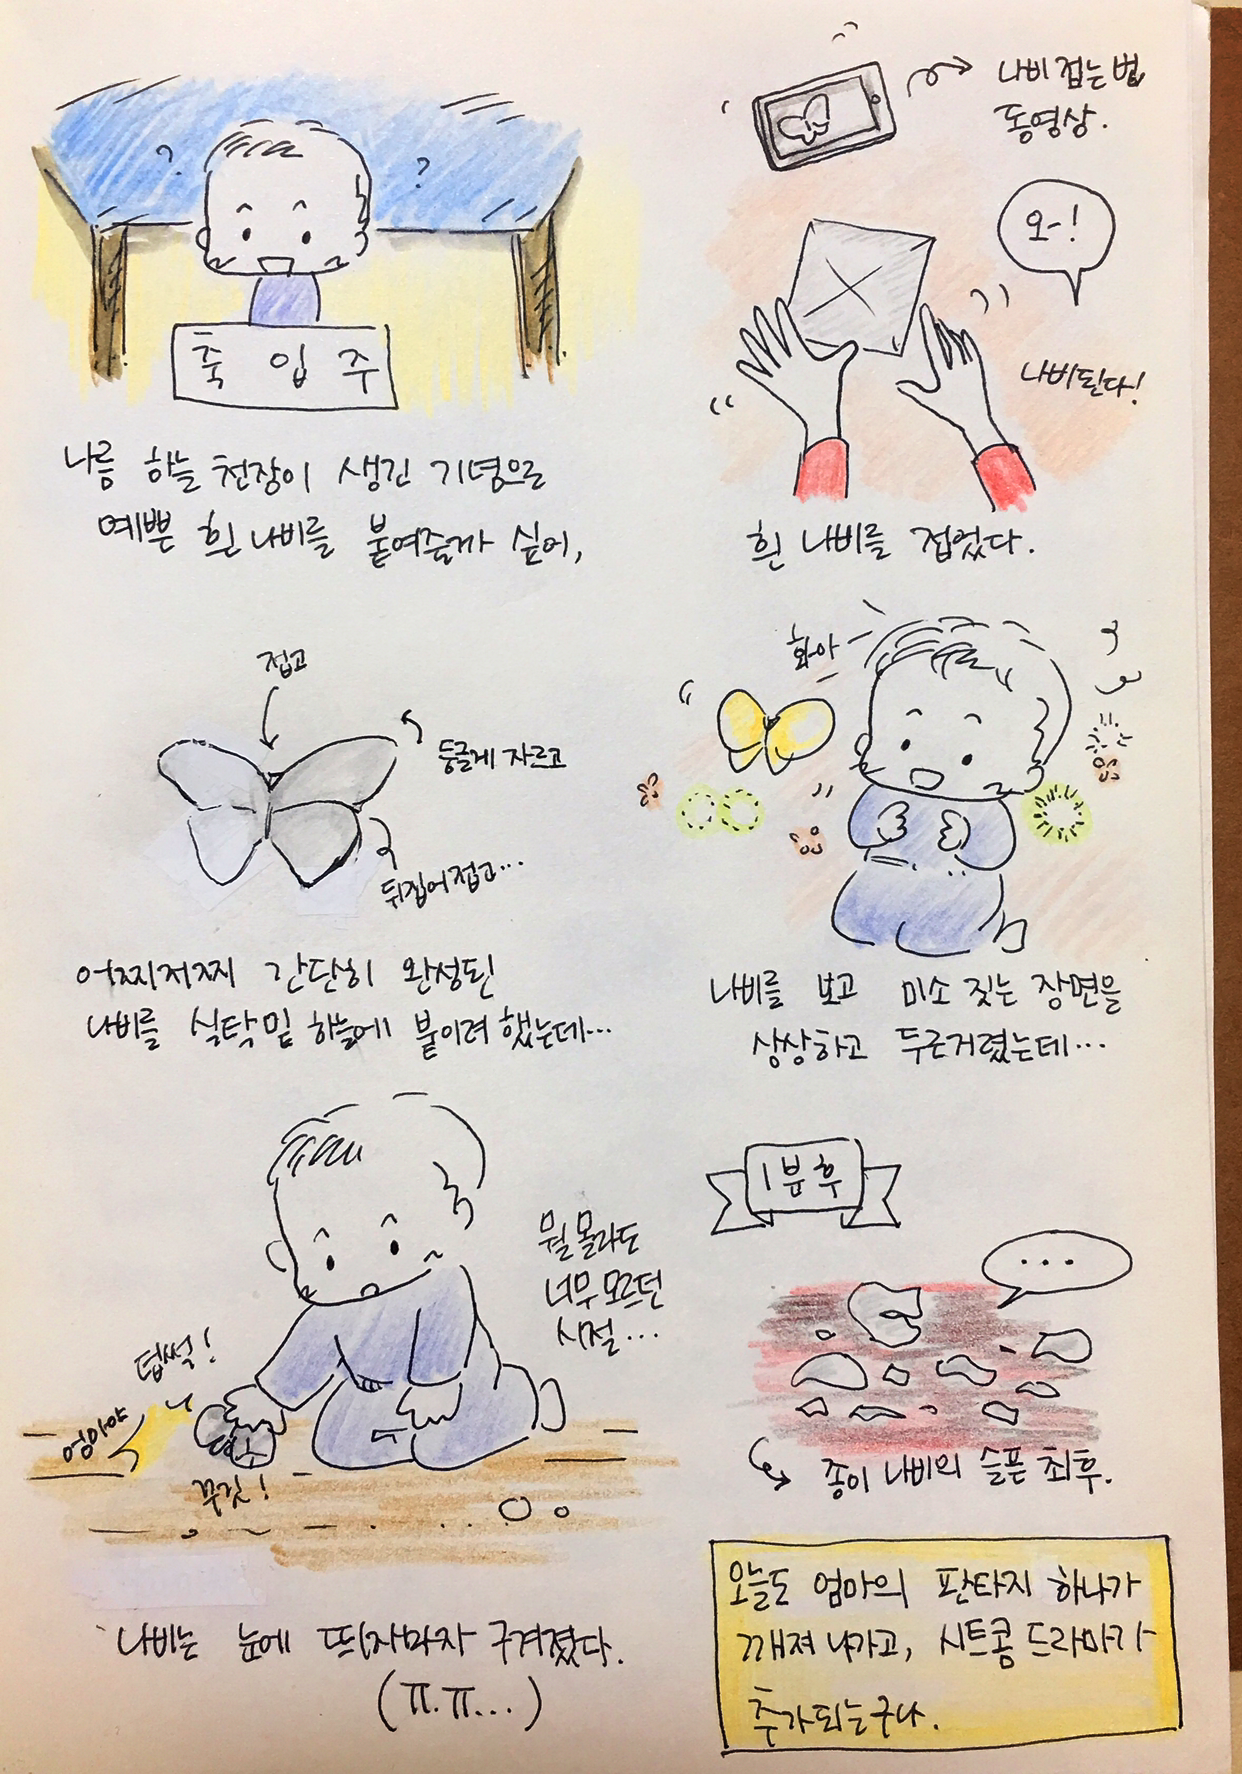 축 입 주
나름 하늘 천장이 생긴 기념으로
예쁜 흰 나비를 붙여줄까 싶어,
나비 접는 법
동영상.
오-!
나비된다!
흰 나비를 접었다.
접고
둥글게 자르고
뒤집어 접고...
어찌저찌 간단히 완성된
나비를 식탁 밑 하늘에 붙이려 했는데...
화아
나비를 보고 미소 짓는 장면을
상상하고 두근거렸는데...
뭘 몰라도
너무 모르던
시절...
덥썩!
엉마야
꾸깃!
나비는 눈에 띄자마자 구겨졌다.
(ㅠ.ㅠ...)
1분 후
...
종이 나비의 슬픈 최후.
오늘도 엄마의 판타지 하나가
깨져 나가고, 시트콤 드라마가
추가되는구나.